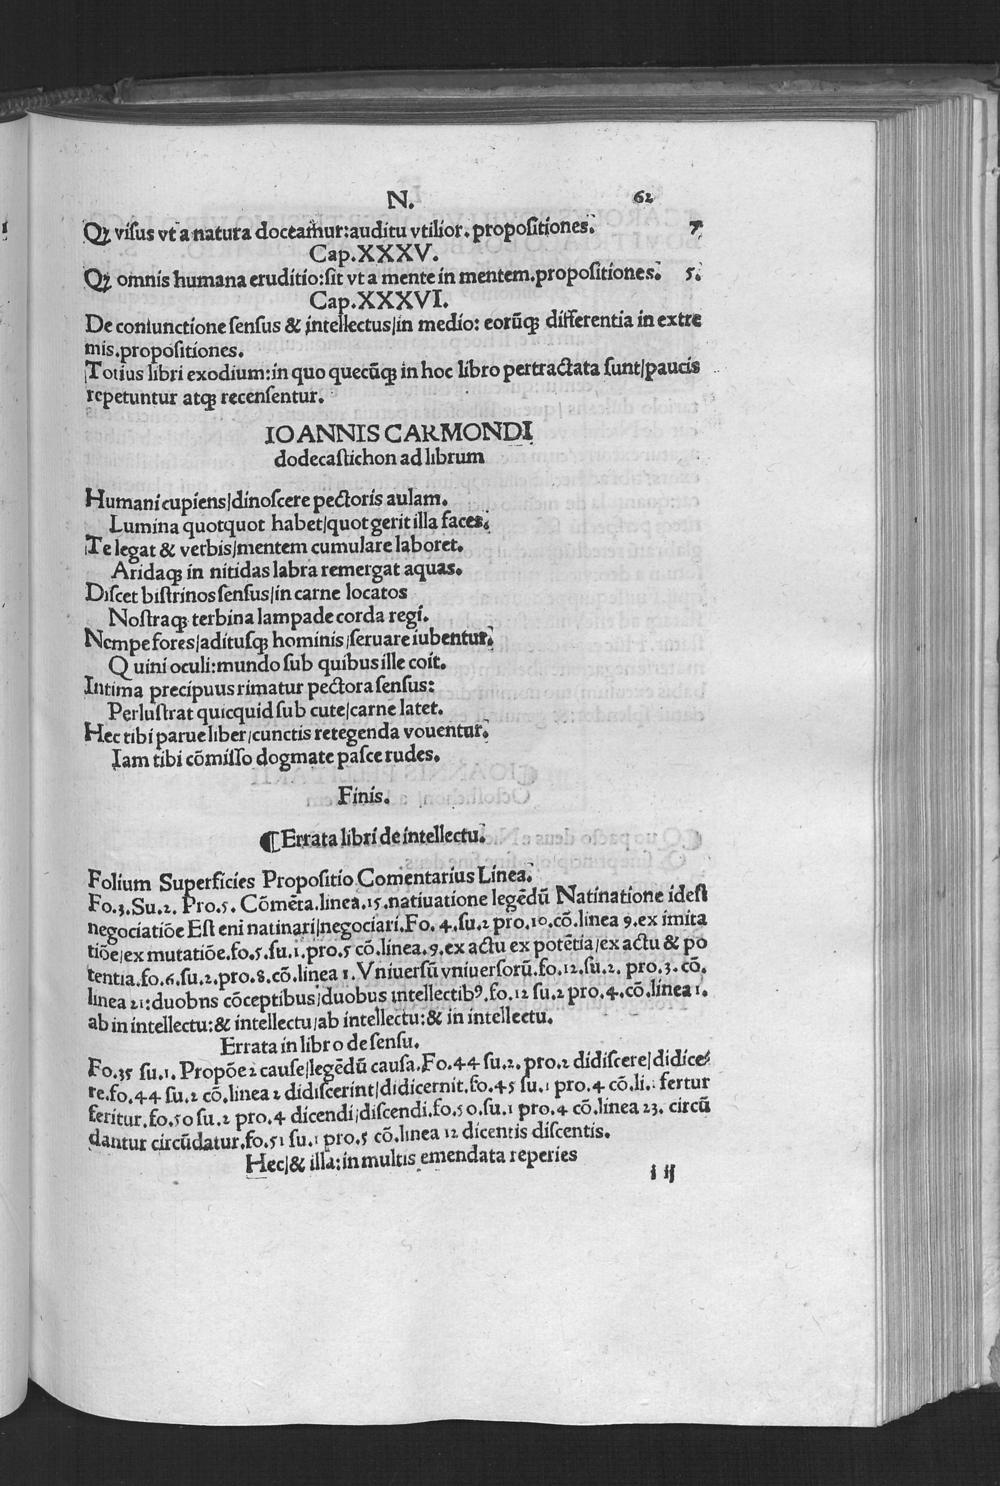 N. 62
Qꝫ visus vt a natura doceamur:auditu vtilior.propositiones. 7
Cap.XXXV.
Qꝫ omnis humana eruditio:sit vt a mente in mentem.propositiones. 5.
Cap.XXXVI.
De coniunctione sensus & intellectus/in medio: eorūqꝫ differentia in extre
mis.propositiones.
Totius libri exodium:in quo quecūqꝫ in hoc libro pertractata sunt/paucis
repetuntur atqꝫ recensentur.
IOANNIS CARMONDI
dodecastichon ad librum
Humani cupiens/dinoscere pectoris aulam.
Lumina quotquot habet/quot gerit illa faces.
Te legat & verbis/mentem cumulare laboret.
Aridaqꝫ in nitidas labra remergat aquas.
Discet bistrinos sensus/in carne locatos
Nostraqꝫ ter bina lampade corda regi.
Nempe fores/aditusqꝫ hominis/seruare iubentur.
Quini oculi:mundo sub quibus ille coit.
Intima precipuus rimatur pectora sensus:
Perlustrat quicquid sub cute/carne latet.
Hec tibi parue liber/cunctis retegenda vouentur.
Iam tibi cōmisso dogmate pasce rudes.
Finis.
¶Errata libri de intellectu.
Folium Superficies Propositio Comentarius Linea.
Fo.3.Su.2. Pro.5. Cōmēta.linea.15.natiuatione legēdū Natinatione idest
negociatiōe Est eni natinari/negociari.Fo.4.su.2 pro.10.cō.linea 9.ex imita
tiōe/ex mutatiōe.fo.5.su.1.pro.5 cō.linea.9.ex actu ex potētia/ex actu & po
tentia.fo.6.su.2.pro.8.cō.linea 1.Vniuersū vniuersorū.fo.12.su.2. pro.3.cō.
linea 21:duobns cōceptibus/duobus intellectibꝰ.fo.12 su.2 pro.4.cō.linea 1.
ab in intellectu:& intellectu/ab intellectu:& in intellectu.
Errata in libro de sensu.
Fo.35 su.1. Propōe 2 cause/legēdū causa.Fo.44 su.2. pro.2 didiscere/didice
re.fo.44 su.2 cō.linea 2 didiscerint/didicernit.fo.45 su.1 pro.4 cō.li. fertur
feritur.fo.50 su.2 pro.4 dicendi/discendi.fo.50.su.1 pro.4 cō.linea 23. circū
dantur circūdatur.fo.51 su.1 pro.5 cō.linea 12 dicentis discentis.
Hec/& illa:in multis emendata reperies
i ij